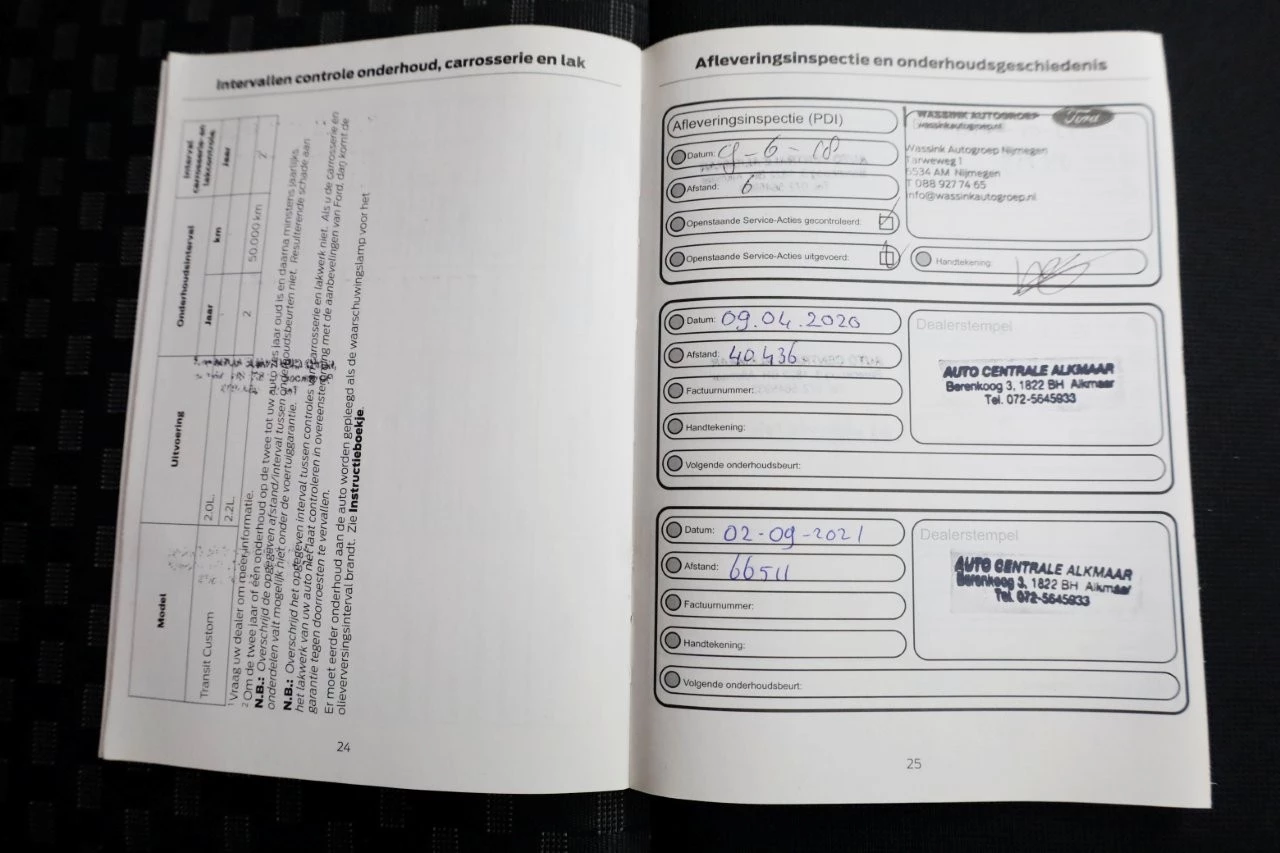 Intervallen controle onderhoud, carrosserie en lak
Model
Uitvoering
Onderhoudsinterval
Interval carrosserie- en lakcontrole
Jaar
km
Jaar
Transit Custom
2.0L.
2.2L.
2
50.000 km
2
1 Vraag uw dealer om meer informatie.
2 Om de twee jaar of één onderhoud op de twee tot uw auto zes jaar oud is en daarna minstens jaarlijks.
N.B.: Overschrijd de opgegeven afstand/interval tussen onderhoudsbeurten niet. Resulterende schade aan
onderdelen valt mogelijk niet onder de voertuiggarantie.
N.B.: Overschrijd het opgegeven interval tussen controles van carrosserie en lakwerk niet. Als u de carrosserie en
het lakwerk van uw auto niet laat controleren in overeenstemming met de aanbevelingen van Ford, dan komt de
garantie tegen doorroesten te vervallen.
Er moet eerder onderhoud aan de auto worden gepleegd als de waarschuwingslamp voor het
olieverversingsinterval brandt. Zie Instructieboekje.
24
Afleveringsinspectie en onderhoudsgeschiedenis
Afleveringsinspectie (PDI)
Datum:
Afstand: 6
Openstaande Service-Acties gecontroleerd:
Openstaande Service-Acties uitgevoerd:
WASSINK AUTOGROEP
wassinkautogroep.nl
Ford
Wassink Autogroep Nijmegen
Tarweweg 1
6534 AM Nijmegen
T 088 927 74 65
info@wassinkautogroep.nl
Handtekening:
Datum: 09.04.2020
Afstand: 40.436
Factuurnummer:
Handtekening:
Volgende onderhoudsbeurt:
Dealerstempel
AUTO CENTRALE ALKMAAR
Berenkoog 3, 1822 BH Alkmaar
Tel. 072-5645933
Datum: 02-09-2021
Afstand: 66511
Factuurnummer:
Handtekening:
Volgende onderhoudsbeurt:
Dealerstempel
AUTO CENTRALE ALKMAAR
Berenkoog 3, 1822 BH Alkmaar
Tel. 072-5645933
25